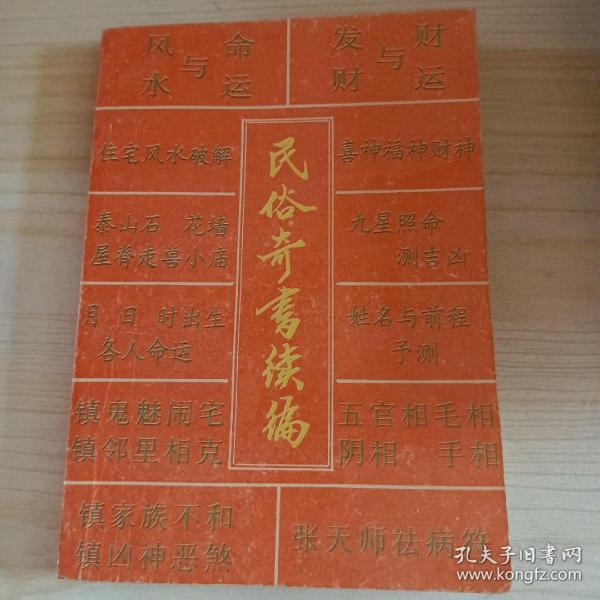 风水与命运
发财与财运
住宅风水破解
喜神福神财神
泰山石 花墙
屋脊走兽小庙
九星照命
测吉凶
民俗奇书续编
月 日 时出生
各人命运
姓名与前程
予测
镇鬼魅闹宅
镇邻里相克
五官相毛相
阴相 手相
镇家族不和
镇凶神恶煞
张天师祛病符
孔夫子旧书网
www.kongfz.com